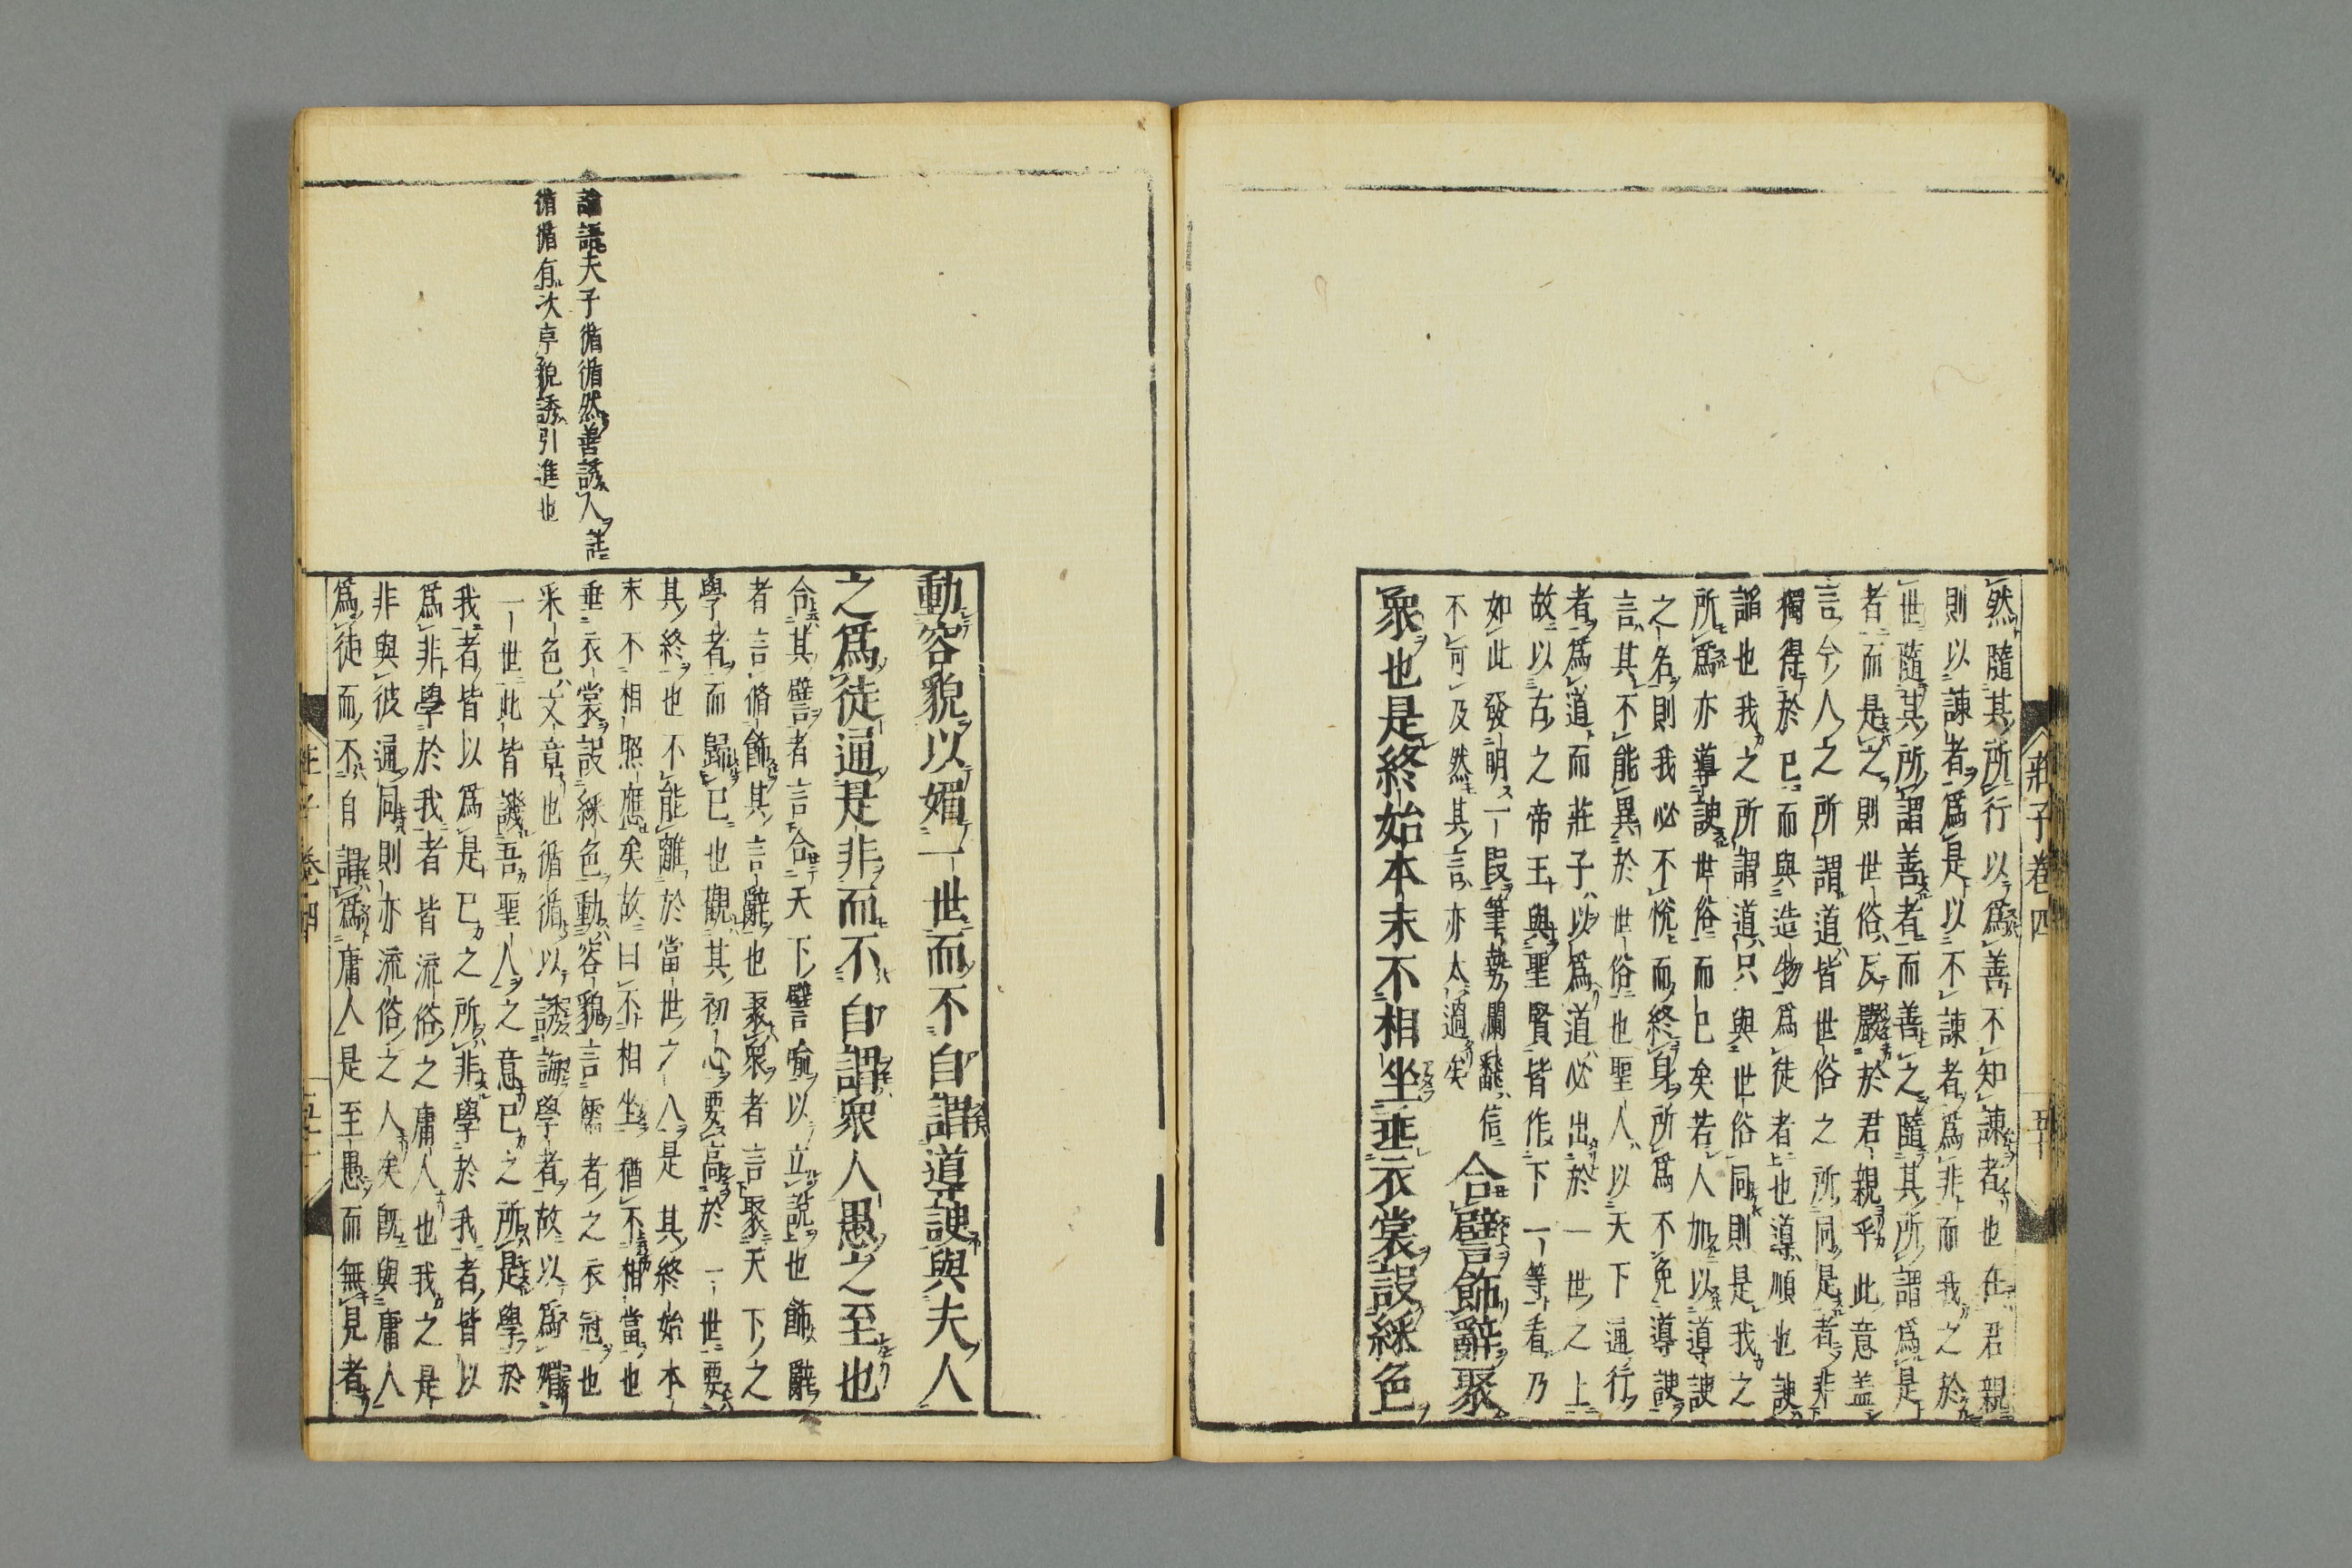 莊子卷四
五十
然隨其所行以為善不知諫者也在君親
則以諫者為是以不諫者為非而我之於
世隨其所謂善者而善之隨其所謂為是
者而是之則世俗反嚴於君親乎此意盖
言今人之所謂道皆世俗之所同是者非
獨得於已而與造物為徒者也導順也諛
謟也我之所謂道只與世俗同則是我之
所為亦導諛世俗而已矣若人加以導諛
之名則我必不悅而終身所為不免導諛
言其不能異於世俗也聖人以天下通行
者為道而莊子以為道必出於一世之上
故以古之帝王與聖賢皆作下一等看乃
如此發明一段筆勢瀾飜信
不可及然其言亦太過矣
合譬飾辭聚
衆也是終始本末不相坐垂衣裳設綵色
動容貌以媚一世而不自謂導諛與夫人
之為徒通是非而不自謂衆人愚之至也
合其譬者言合天下譬喻以立說也飾辭
者言脩飾其言辭也聚衆者言聚天下之
學者而歸已也觀其初心要高於一世要
其終也不能離於當世之人是其終始本
末不相照應矣故曰不相坐猶不相當也
垂衣裳設綵色動容貌言儒者之衣冠也
采色文章也循循以誘誨學者故以為媚
一世此皆譏吾聖人之意已之所是學於
我者皆以為是已之所非學於我者皆以
為非學於我者皆流俗之庸人也我之是
非與彼通同則亦流俗之人矣既與庸人
為徒而不自謂為庸人是至愚而無見者
論語夫子循循然善誘人註
循循有次序貌誘引進也